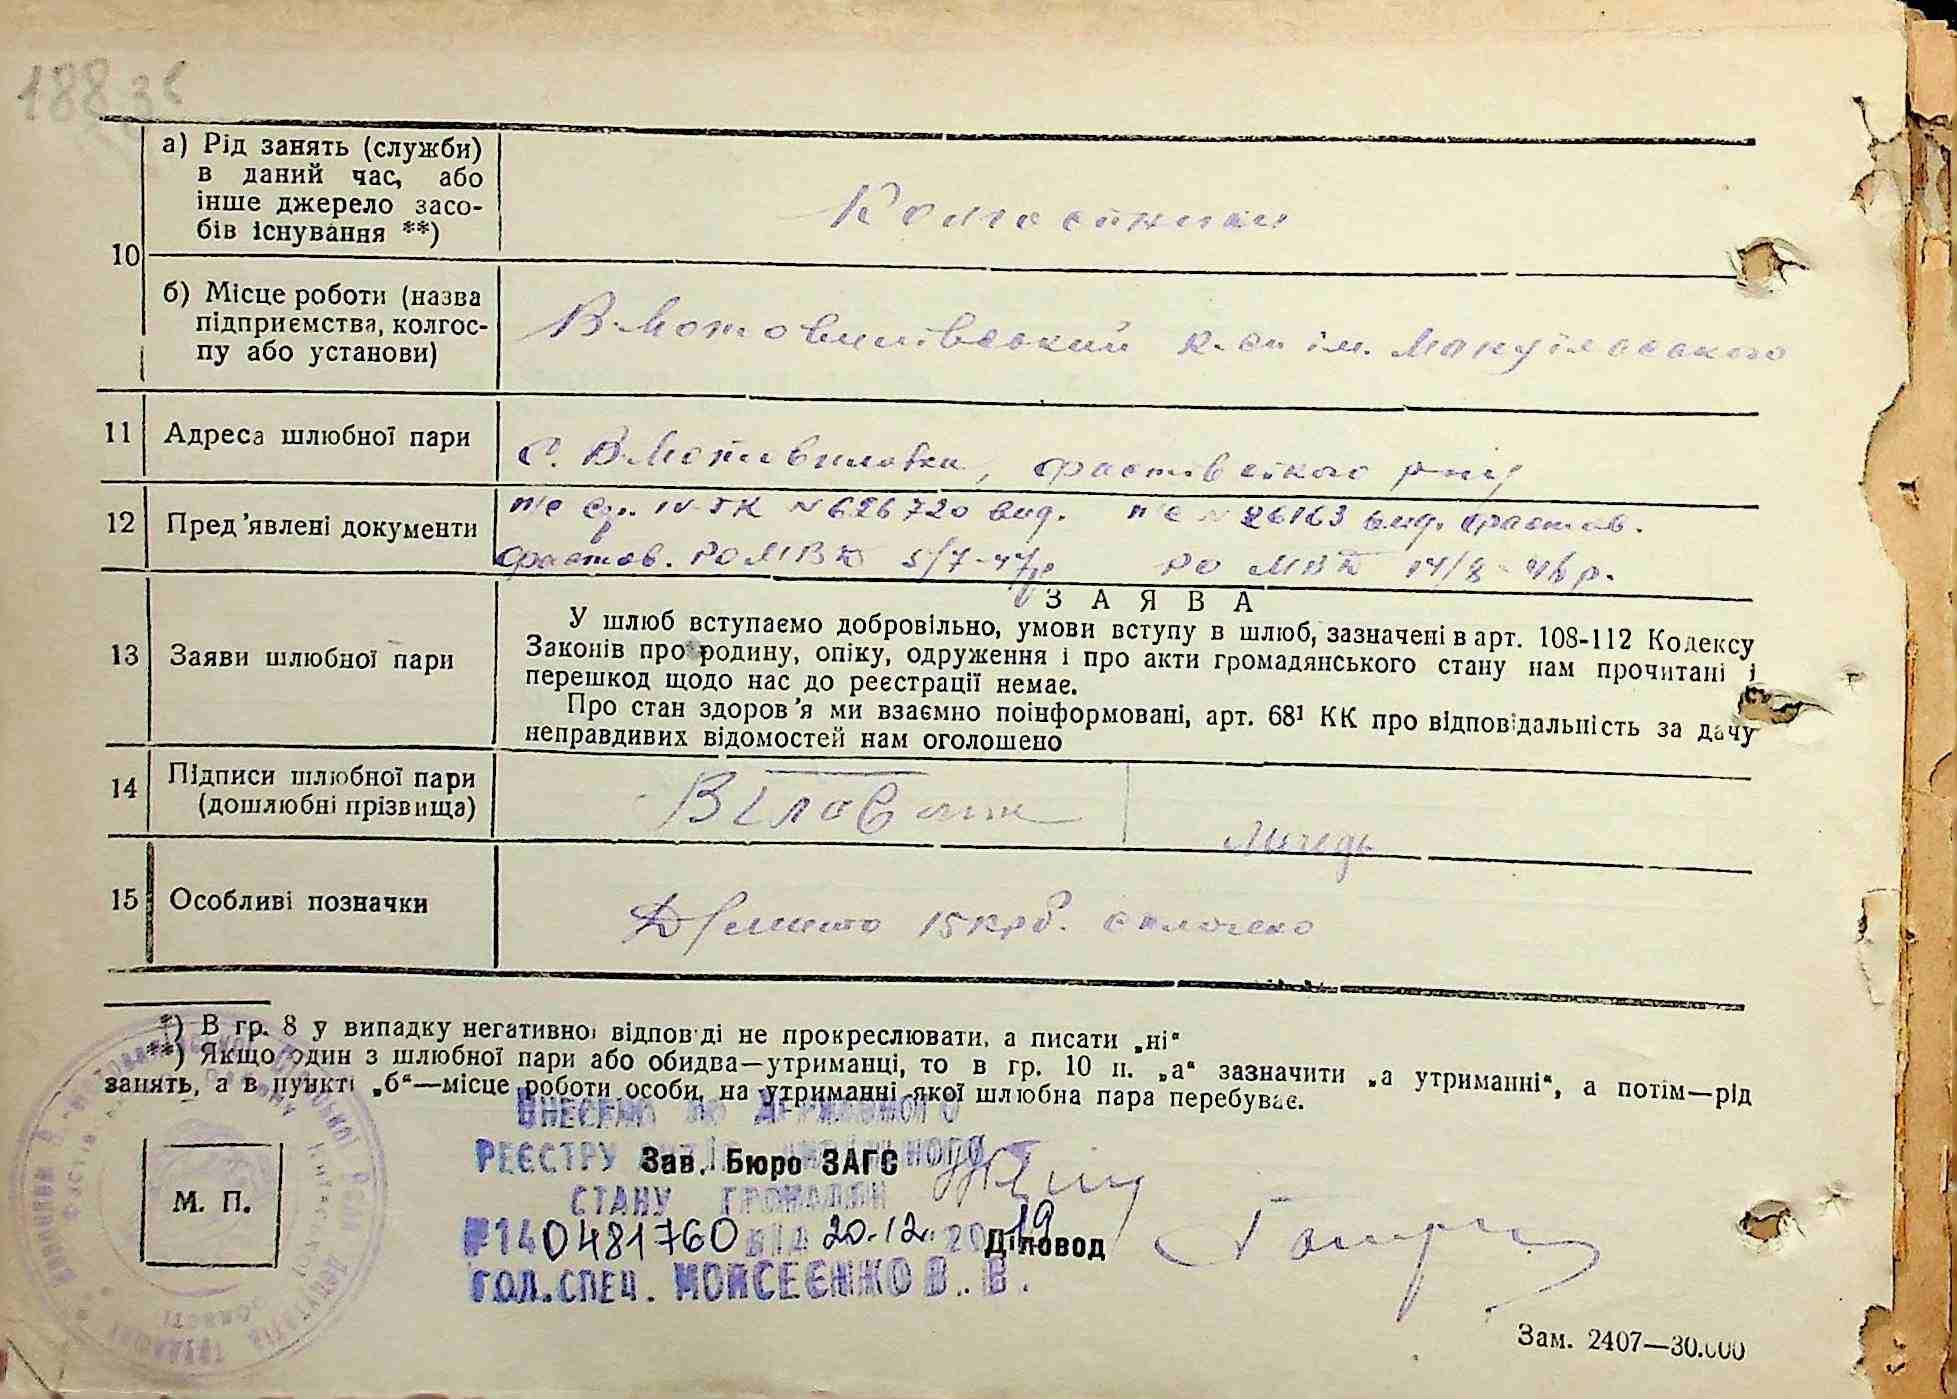 188 зв
10
а) Рід занять (служби)
в даний час, або
інше джерело засо-
бів існування **)
Колгоспники
б) Місце роботи (назва
підприємства, колгос-
пу або установи)
В-Мотовилівський к-сп ім. Мануїльського
11 Адреса шлюбної пари
с. В-Мотовиловка, Фастівського р-ну
12 Пред'явлені документи
п/с N 626720 вид. п/с N 26163 вид. Фастов.
Фастов. РО МВД 5/7-47р РО МВД 14/8-46р.
13 Заяви шлюбної пари
ЗАЯВА
У шлюб вступаємо добровільно, умови вступу в шлюб, зазначені в арт. 108-112 Кодексу
Законів про родину, опіку, одруження і про акти громадянського стану нам прочитані і
перешкод щодо нас до реєстрації немає.
Про стан здоров'я ми взаємно поінформовані, арт. 68¹ КК про відповідальність за дачу
неправдивих відомостей нам оголошено
14 Підписи шлюбної пари
(дошлюбні прізвища)
15 Особливі позначки
Держмито 15 крб. сплочено
*) В гр. 8 у випадку негативної відповіді не прокреслювати, а писати „ні“
**) Якщо один з шлюбної пари або обидва—утриманці, то в гр. 10 п. „а“ зазначити „а утриманні“, а потім—рід
занять, а в пункті „б“—місце роботи особи, на утриманні якої шлюбна пара перебуває.
ВНЕСЕНО ДО ДЕРЖАВНОГО
РЕЄСТРУ АКТІВ ЦИВІЛЬНОГО
Зав. Бюро ЗАГС
СТАНУ ГРОМАДЯН
М. П.
№140481760 ВІД 20.12.2019
Діловод
ГОЛ.СПЕЦ. МОЙСЕЄНКО В. В.
Зам. 2407—30.000